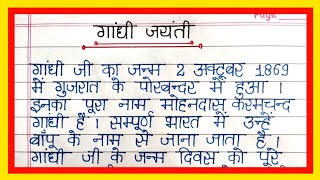 Page
गाँधी जयंती
गांधी जी का जन्म 2 अक्टूबर 1869
में गुजरात के पोरबन्दर में हुआ ।
इनका पूरा नाम मोहनदास करमचन्द
गाधी है । सम्पूर्ण भारत में उन्हें
बापू के नाम से जाना जाता है ।
गांधी जी के जन्म दिवस को पूरे